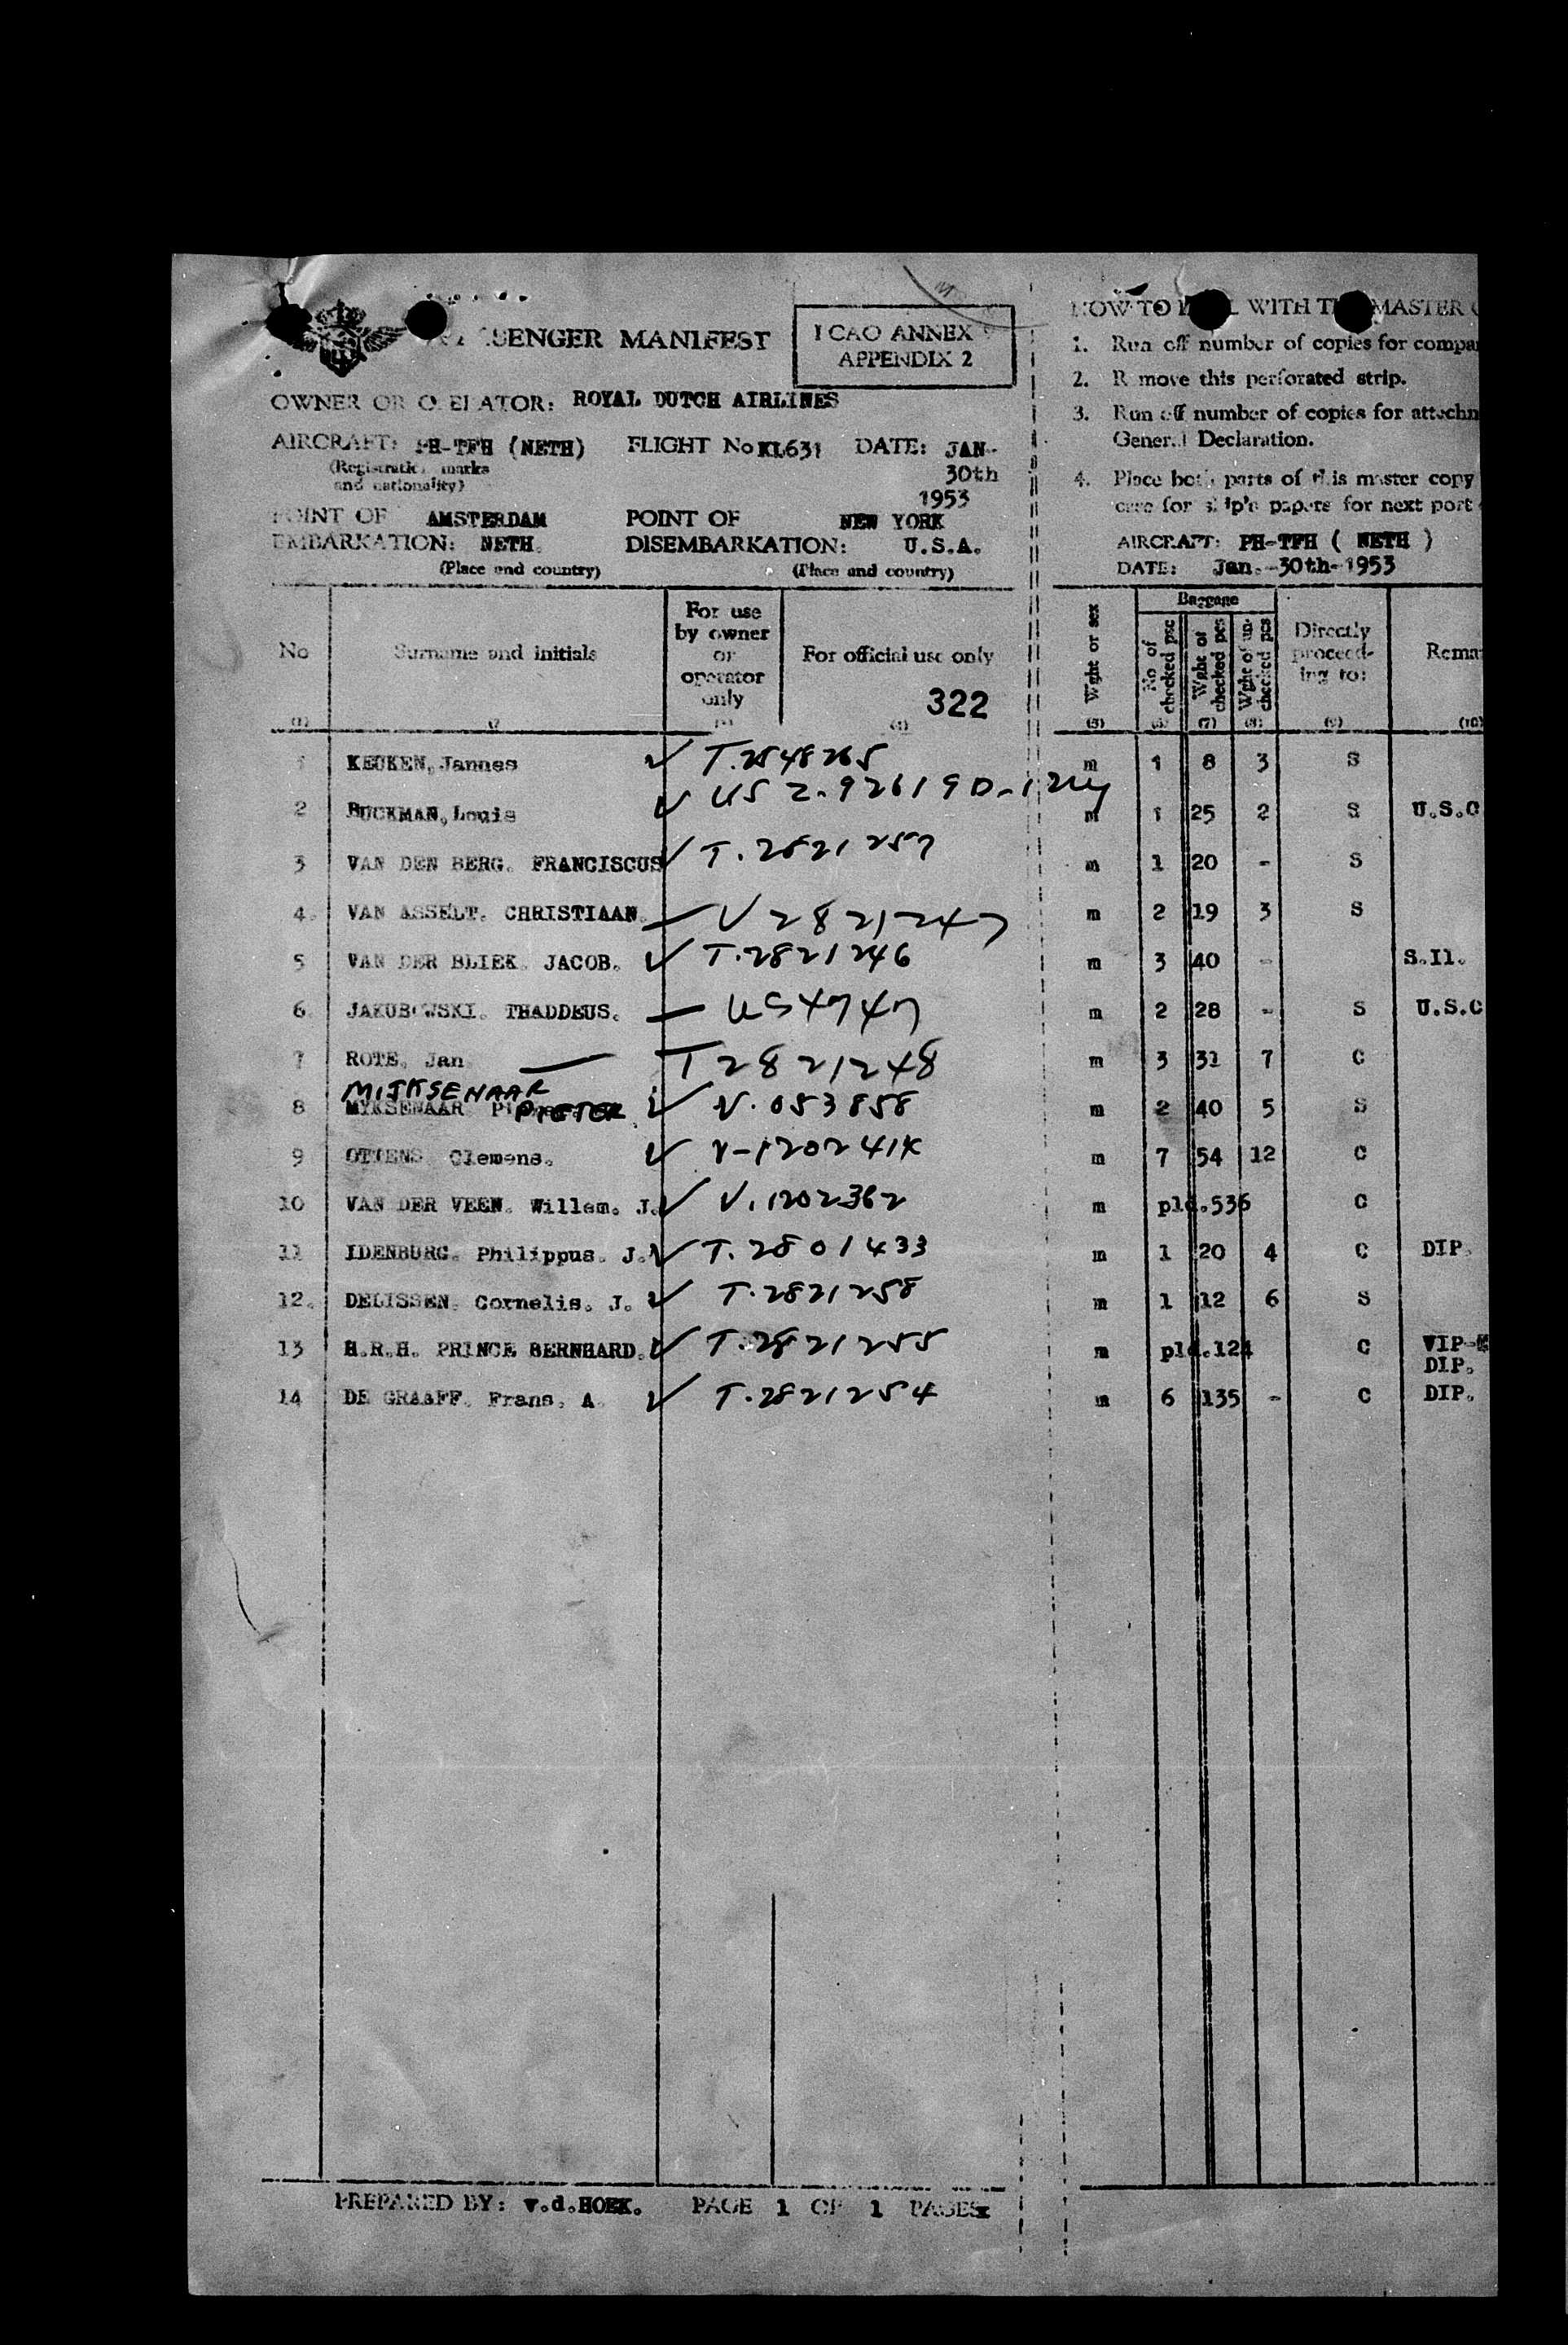 PASSENGER MANIFEST
I CAO ANNEX 9
APPENDIX 2
OWNER OR OPERATOR: ROYAL DUTCH AIRLINES
AIRCRAFT: PH-TFH (NETH) FLIGHT No KL631 DATE: JAN-
(Registration marks
and nationality)
30th
1953
POINT OF AMSTERDAM POINT OF NEW YORK
EMBARKATION: NETH. DISEMBARKATION: U.S.A.
(Place and country) (Place and country)
No Surname and initials For use by owner or operator only For official use only
322
(1) (4)
1 KEUKEN, Jannes T.2548265
2 BUCKMAN, Louis US 2-926190-
3 VAN DEN BERG. FRANCISCUS T.2821257
4. VAN ASSELT. CHRISTIAAN. V 2821247
5 VAN DER BLIEK. JACOB. T.2821246
6. JAKUBOWSKI. THADDEUS. US4747
7 ROTE, Jan T 2821248
MIJKSENAAR
8 MYKSENAAR PIETER V.053858
9 OTTENS Clemens. V-120241K
10 VAN DER VEEN. Willem. J. V.1202362
11 IDENBURG. Philippus. J. T.2801433
12. DELISSEN. Cornelis. J. T.2821258
13 H.R.H. PRINCE BERNHARD. T.2821255
14 DE GRAAFF. Frans. A. T.2821254
PREPARED BY: v.d.HOEK. PAGE 1 OF 1 PAGES
HOW TO WITH MASTER
1. Run off number of copies for
2. Remove this perforated strip.
3. Run off number of copies for
General Declaration.
4. Place both parts of this master copy
care for ship's papers for next port
AIRCRAFT: PH-TFH ( NETH )
DATE: Jan.-30th-1953
Wght or sex Baggage No of checked pcs Wght of checked pcs Wght of un-checked pcs Directly proceed-ing to:
(5) (6) (7) (8) (9) (10)
m 1 8 3 S
m 1 25 2 S U.S.C
m 1 20 - S
m 2 19 3 S
m 3 40 - S.Il.
m 2 28 - S U.S.C
m 3 31 7 C
m 2 40 5 S
m 7 54 12 C
m pld.536 C
m 1 20 4 C DIP.
m 1 12 6 S
m pld.124 C VIP-
DIP.
m 6 135 - C DIP.